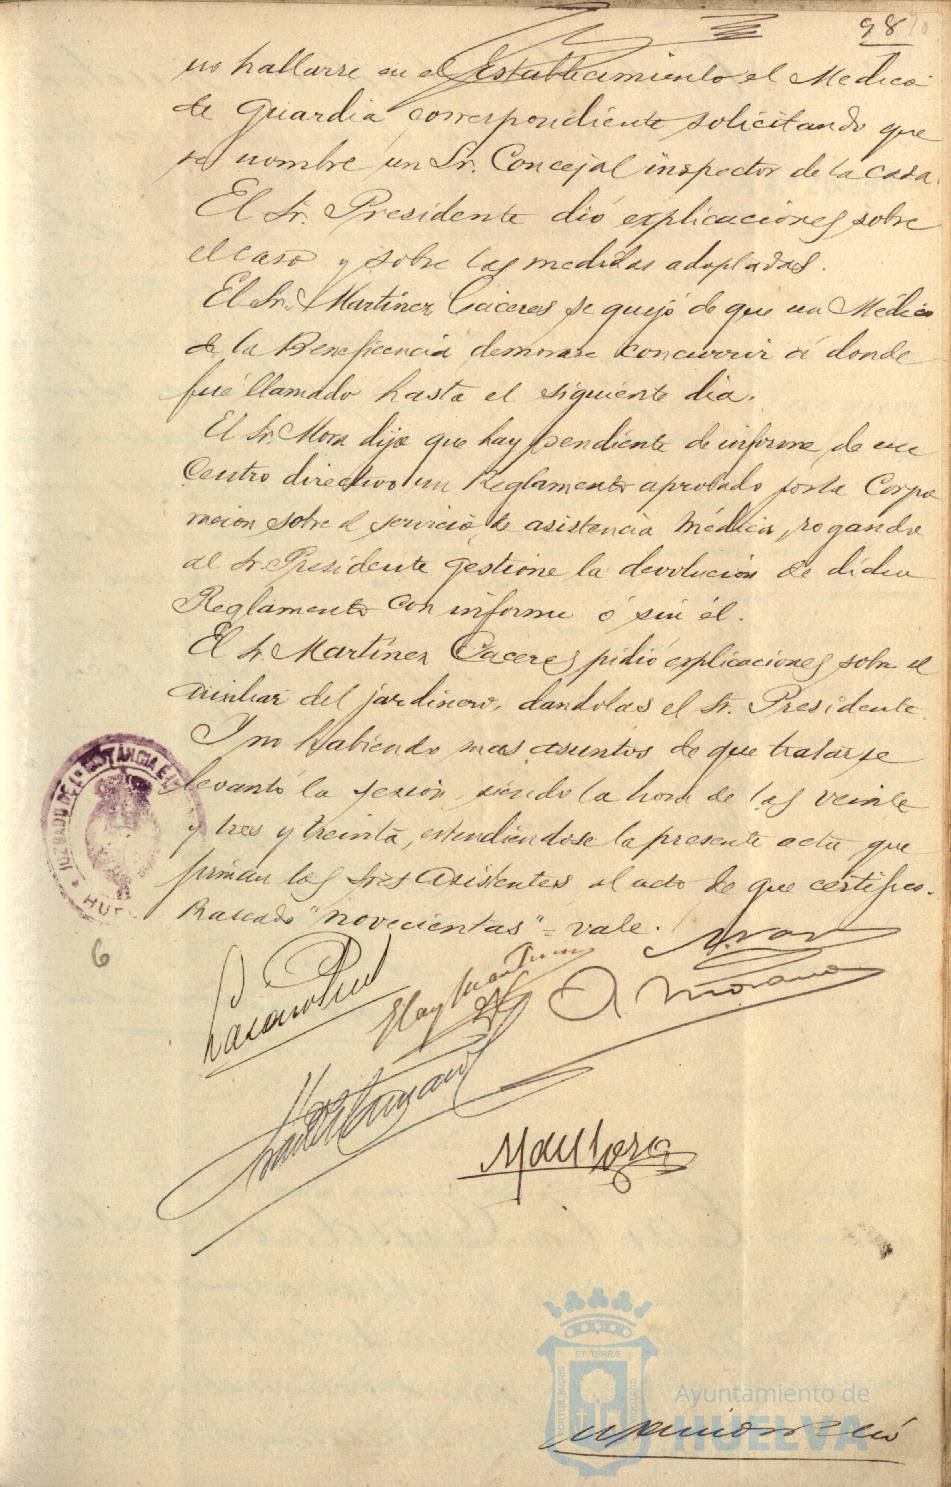 98
no hallarse en el Establecimiento el Medico
de Guardia correspondiente solicitando que
se nombre un Sr. Concejal inspector de la casa.
El Sr. Presidente dió explicaciones sobre
el caso y sobre las medidas adoptadas.
El Sr. Martinez Cáceres se quejó de que un Médico
de la Beneficencia demorase concurrir á donde
fué llamado hasta el siguiente dia.
El Sr. Mora dijo que hay pendiente de informe, de un
Centro directivo un Reglamento aprobado por la Corpo
racion sobre el servicio de asistencia médica, rogando
al Sr. Presidente gestione la devolucion de dicho
Reglamento con informe ó sin él.
El Sr. Martinez Cáceres pidió explicaciones sobre el
auxiliar del jardinero, dandolas el Sr. Presidente.
Y no habiendo mas asuntos de que tratar se
levantó la sesion, siendo la hora de las veinte
y tres y treinta, estendiéndose la presente acta que
firman los Sres asistentes al acto de que certifico.
Rascado "novecientas" = vale.
JUZGADO DE 1ª INSTANCIA E
HU
6
A. Morano
EN TERRAE
PORTUS MARIS
CUSTODIA
Ayuntamiento de
HUELVA